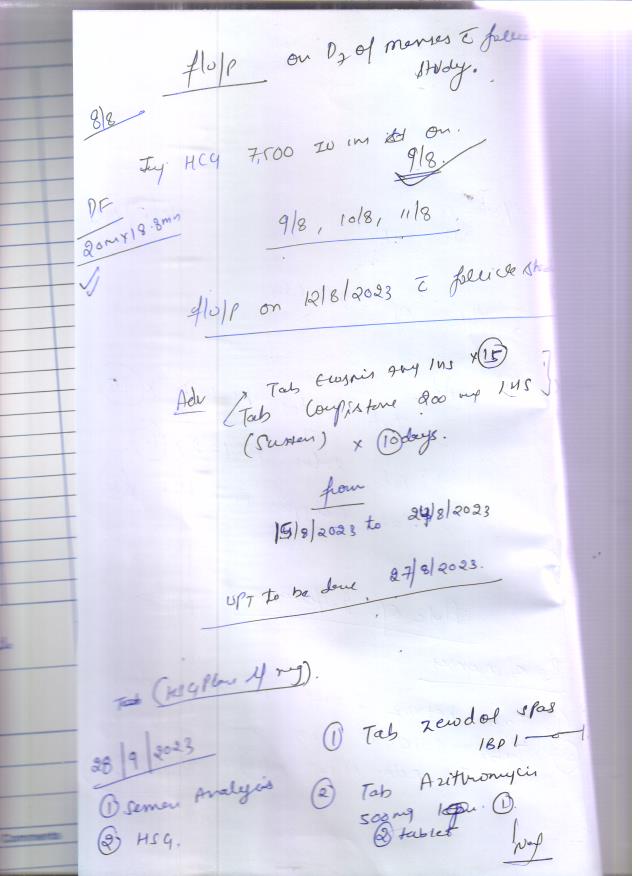 f/u/p on D2 of menses c̄ follic
study.
8/8
Inj HCG 7,500 IU im on.
9/8.
DF
20mm x 18.8mm
9/8, 10/8, 11/8
f/u/p on 12/8/2023 c̄ follicle
Adv Tab Ecosprin 1HS x 15
Tab 200 mg 1HS
(Susten) x 10 days.
from
15/8/2023 to 24/8/2023
UPT to be done 27/8/2023.
(HSG Plan if neg).
28/9/2023
① Semen Analysis
② HSG.
① Tab zerodol spas
1BD
② Tab Azithromycin
500mg
② tablet